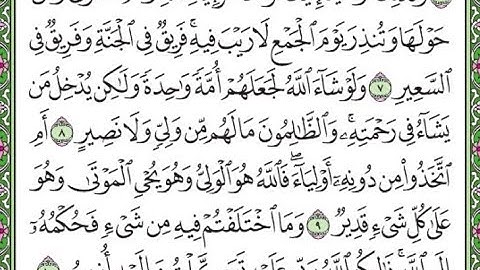 حَوْلَهَا وَتُنذِرَ يَوْمَ ٱلْجَمْعِ لَا رَيْبَ فِيهِ ۚ فَرِيقٌ فِى ٱلْجَنَّةِ وَفَرِيقٌ فِى
ٱلسَّعِيرِ ٧ وَلَوْ شَآءَ ٱللَّهُ لَجَعَلَهُمْ أُمَّةً وَٰحِدَةً وَلَٰكِن يُدْخِلُ مَن
يَشَآءُ فِى رَحْمَتِهِۦ ۚ وَٱلظَّٰلِمُونَ مَا لَهُم مِّن وَلِىٍّ وَلَا نَصِيرٍ ٨ أَمِ
ٱتَّخَذُوا۟ مِن دُونِهِۦٓ أَوْلِيَآءَ ۖ فَٱللَّهُ هُوَ ٱلْوَلِىُّ وَهُوَ يُحْىِ ٱلْمَوْتَىٰ وَهُوَ
عَلَىٰ كُلِّ شَىْءٍ قَدِيرٌ ٩ وَمَا ٱخْتَلَفْتُمْ فِيهِ مِن شَىْءٍ فَحُكْمُهُۥٓ